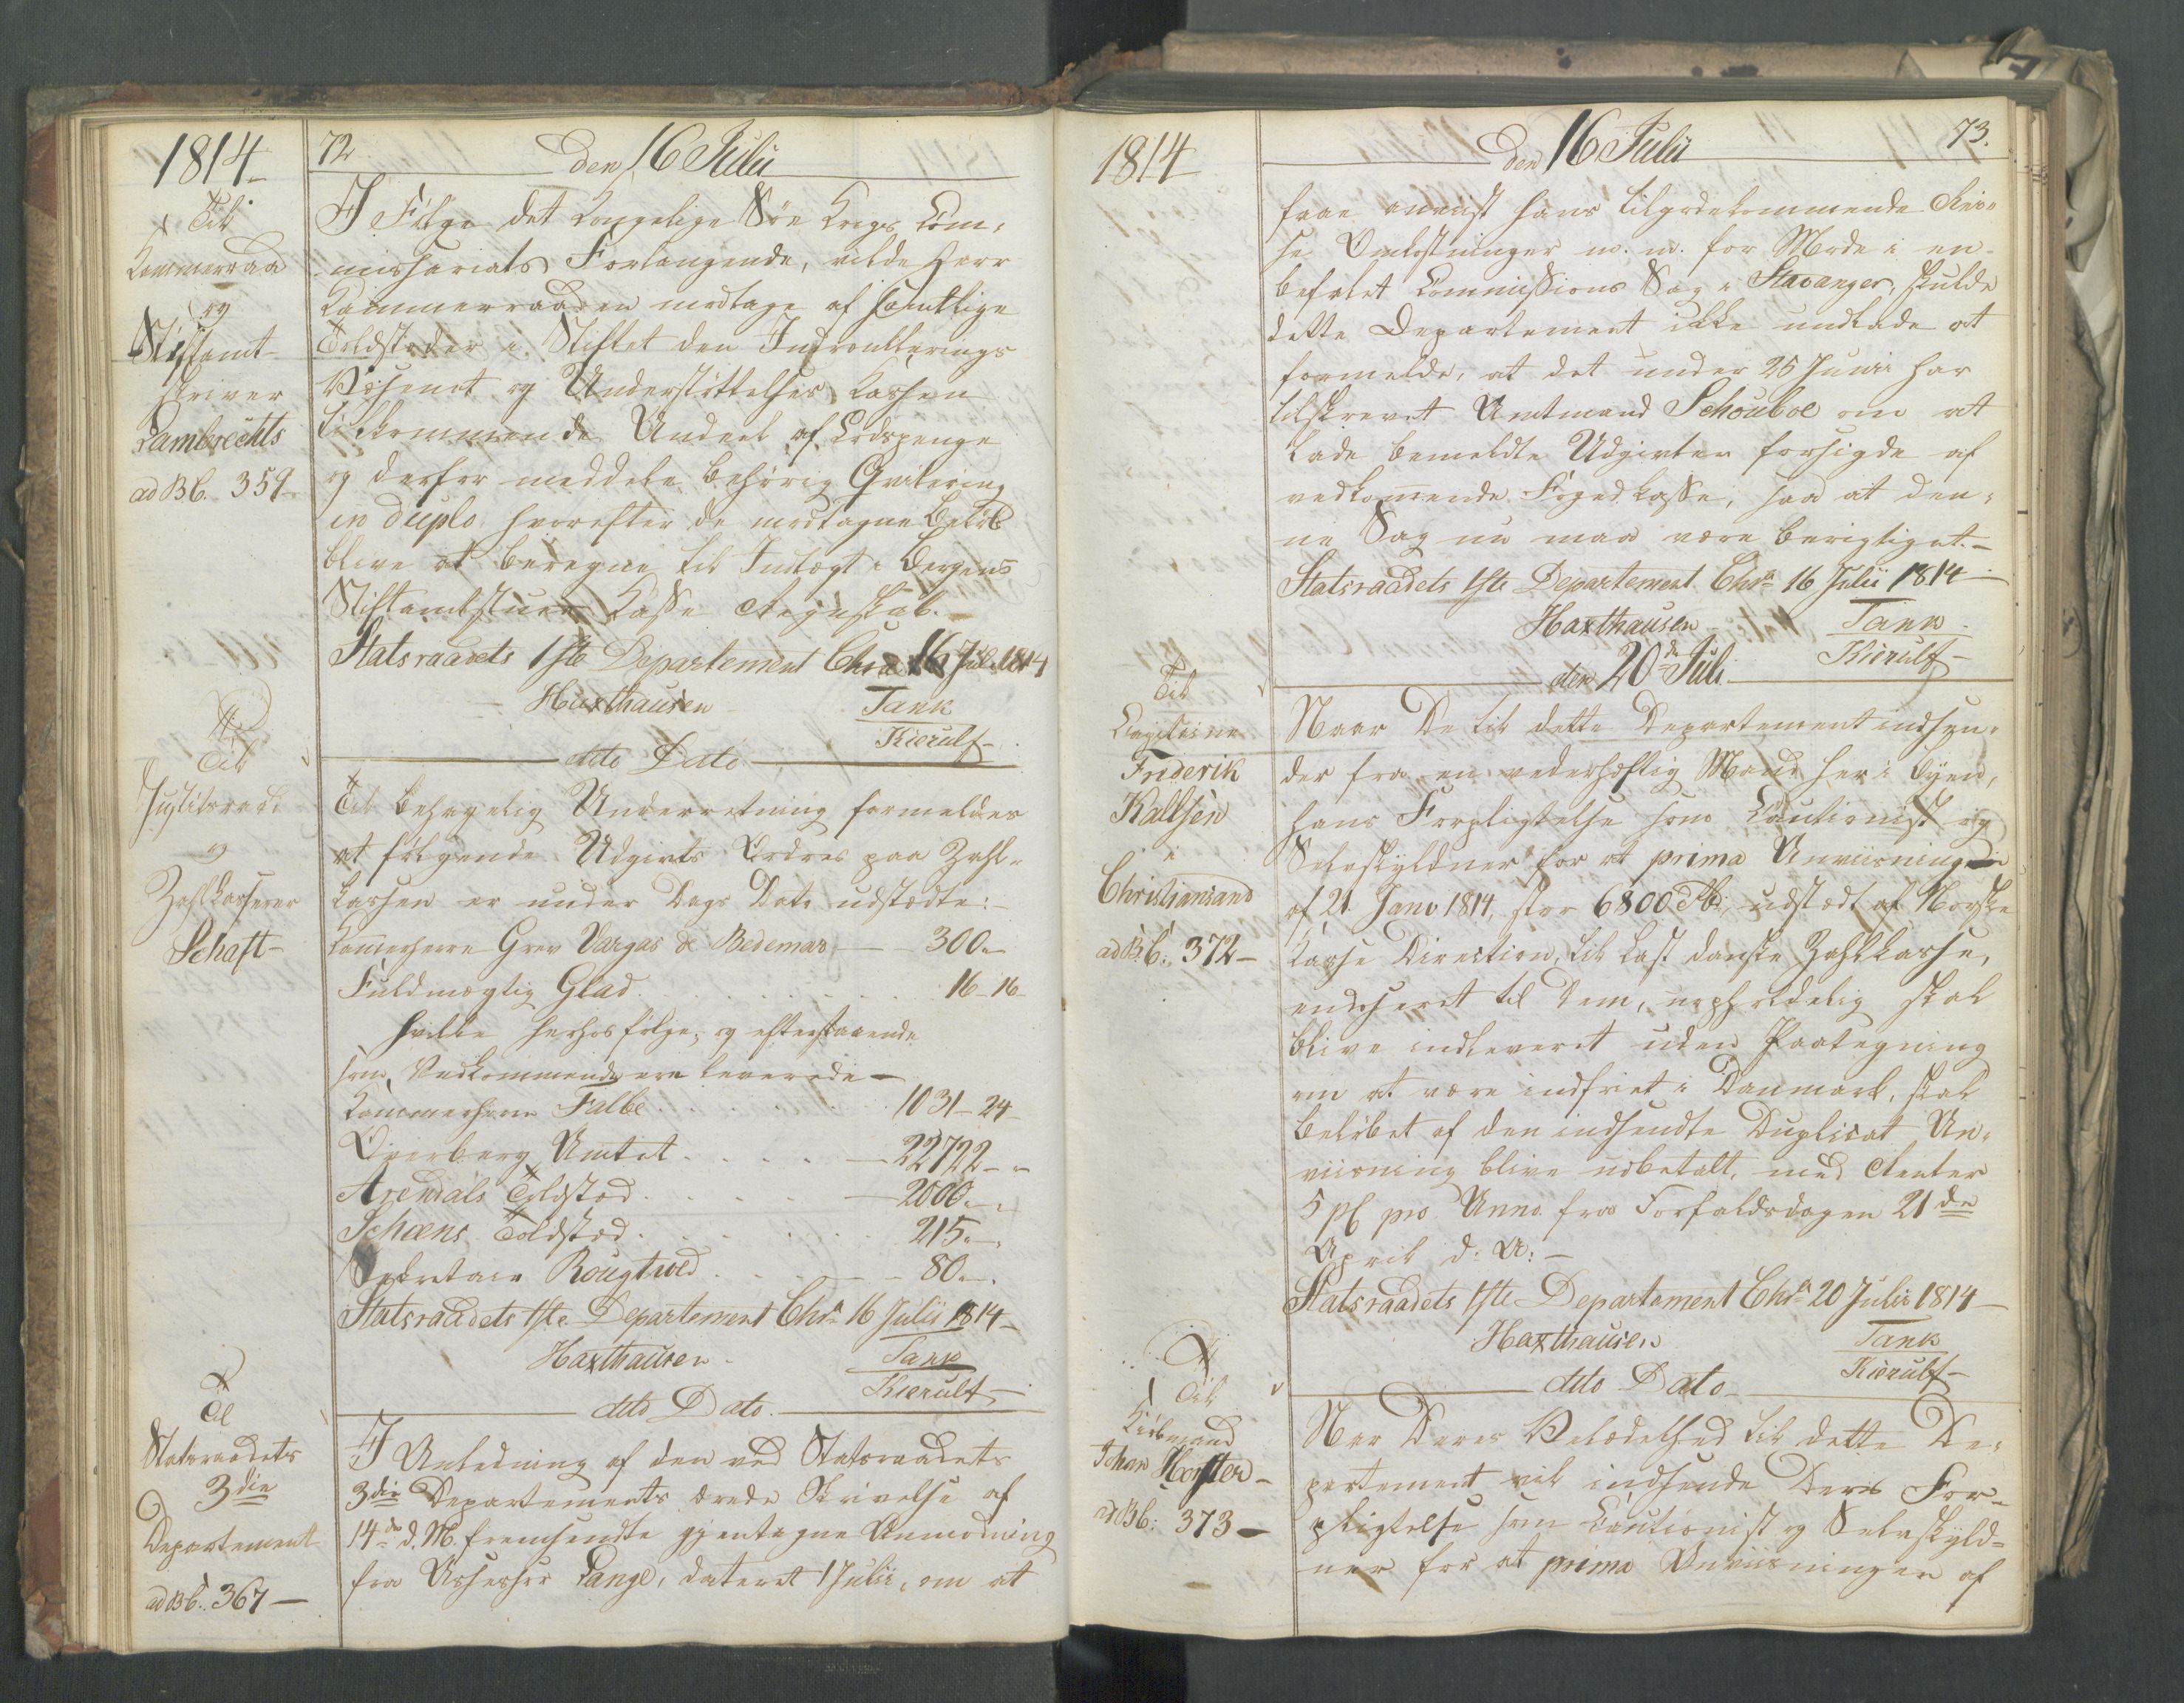 1814
72
den 16 Julii
Til
Kammerraad
og
Stiftamt-
skriver
Lambrechts
ad B b. 359
I Følge det Kongelige Søe Krigs Com-
missariats Forlangende, vilde Herr
Kammerraaden modtage af samtlige
Toldsteder i Stiftet den Indroulerings
Væsenet og Understøttelses Kassen
tilkommende Andeel af Lodspenge
og derfor meddele behørig Qvitering
in duplo, hvorefter de modtagne Beløb
blive at beregne til Indtægt i Bergens
Stiftamtstues Casse Regnskab.
Statsraadets 1ste Departement Chra 16 Juli 1814
Haxthausen Tank
Kierulf
dito Dato
Til
Justitsraad
og
Zahlkasserer
Schaft
Til behagelig Underretning formeldes
at følgende Udgivts Ordres paa Zahl-
kassen er under Dags Dato udstædte:
Kammerherre Grev Vargas de Bedemar 300 -
Fuldmægtig Glad 16 - 16
hvilke herhos følge, og efterstaaende
som Vedkommende ere leverede
Kammerherre Falbe 1031 - 24
Overberg Amtet 22722 - -
Arendals Toldsted 2000 - -
Scheens Toldsted 215 -
Secretair Rougtved 80 -
Statsraadets 1ste Departement Chra 16 Julii 1814
Haxthausen Tank
Kierulf
dito Dato
Til
Statsraadets
3die
Departement
ad B b. 367
I Anledning af den ved Statsraadets
3die Departements ærede Skrivelse af
14de d. M. fremsendte gjentagne Anmodning
fra Assessor Lange, dateret 1 Julii, om at
1814
den 16 Julii
73.
faae anviist hans tilgodekommende Rei-
se Omkostninger m. m. for Møde i en
befalet Commissions Sag i Stavanger, skulde
dette Departement ikke undlade at
formelde, at det under 25 Junii har
tilskrevet Amtmand Schouboe om at
lade bemeldte Udgivter forsigde af
vedkommende Foged Casse, saa at den-
ne Sag nu maa være berigtiget.
Statsraadets 1ste Departement Chra 16 Julii 1814
Haxthausen Tank
Kierulf
den 20de Juli
Til
Capitaine
Friderik
Kaltsen
i
Christiansand
ad B. b. 372
Naar De til dette Departement indsen-
der fra en vederhæftig Mand her i Byen,
hans Forpligtelse som Cautionist og
Selvskyldner for at prima Anviisning
af 21 Janv 1814, stor 6800 Rb, udstædt af Norske
Casse Direction, til Last danske Zahlkasse,
endosseret til Dem, uophodelig skal
blive indleveret uden Paategning
om at være indfriet i Danmark, skal
Beløbet af den indsendte Duplicat An-
viisning blive udbetalt, med Renter
5 pC pro Anno fra Forfaldsdagen 21de
April d. A:
Statsraadets 1ste Departement Chra 20 Julii 1814
Haxthausen Tank
Kierulf
dito Dato
Til
Kiøbmand
Johan Horster
ad B b: 373
Naar Deres Velædelhed til dette De-
partement vil indsende Deres For-
pligtelse som Cautionist og Selvskyld-
ner for at prima Anviisningen af